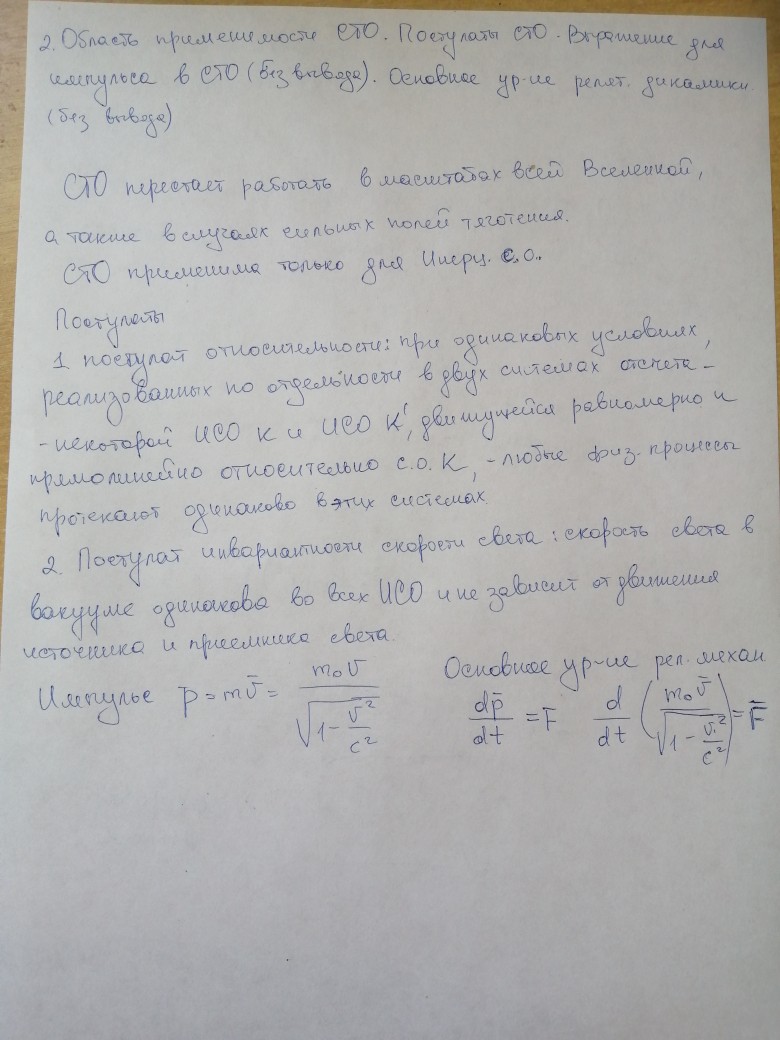 2. Область применимости СТО. Постулаты СТО. Выражение для
импульса в СТО (без вывода). Основное ур-ие релят. динамики
(без вывода)
СТО перестает работать в масштабах всей Вселенной,
а также в случаях сильных полей тяготения.
СТО применима только для Инерц. с.о..
Постулаты
1 постулат относительности: при одинаковых условиях,
реализованных по отдельности в двух системах отсчета -
- некоторой ИСО К и ИСО К', движущейся равномерно и
прямолинейно относительно с.о. К, - любые физ. процессы
протекают одинаково в этих системах.
2. Постулат инвариантности скорости света: скорость света в
вакууме одинакова во всех ИСО и не зависит от движения
источника и приемника света.
Импульс p̄ = mv̄ = m₀v̄ / √(1 - v̄²/c²)
Основное ур-ие рел. механ.
dp̄/dt = F̄ d/dt (m₀v̄ / √(1 - v̄²/c²)) = F̄